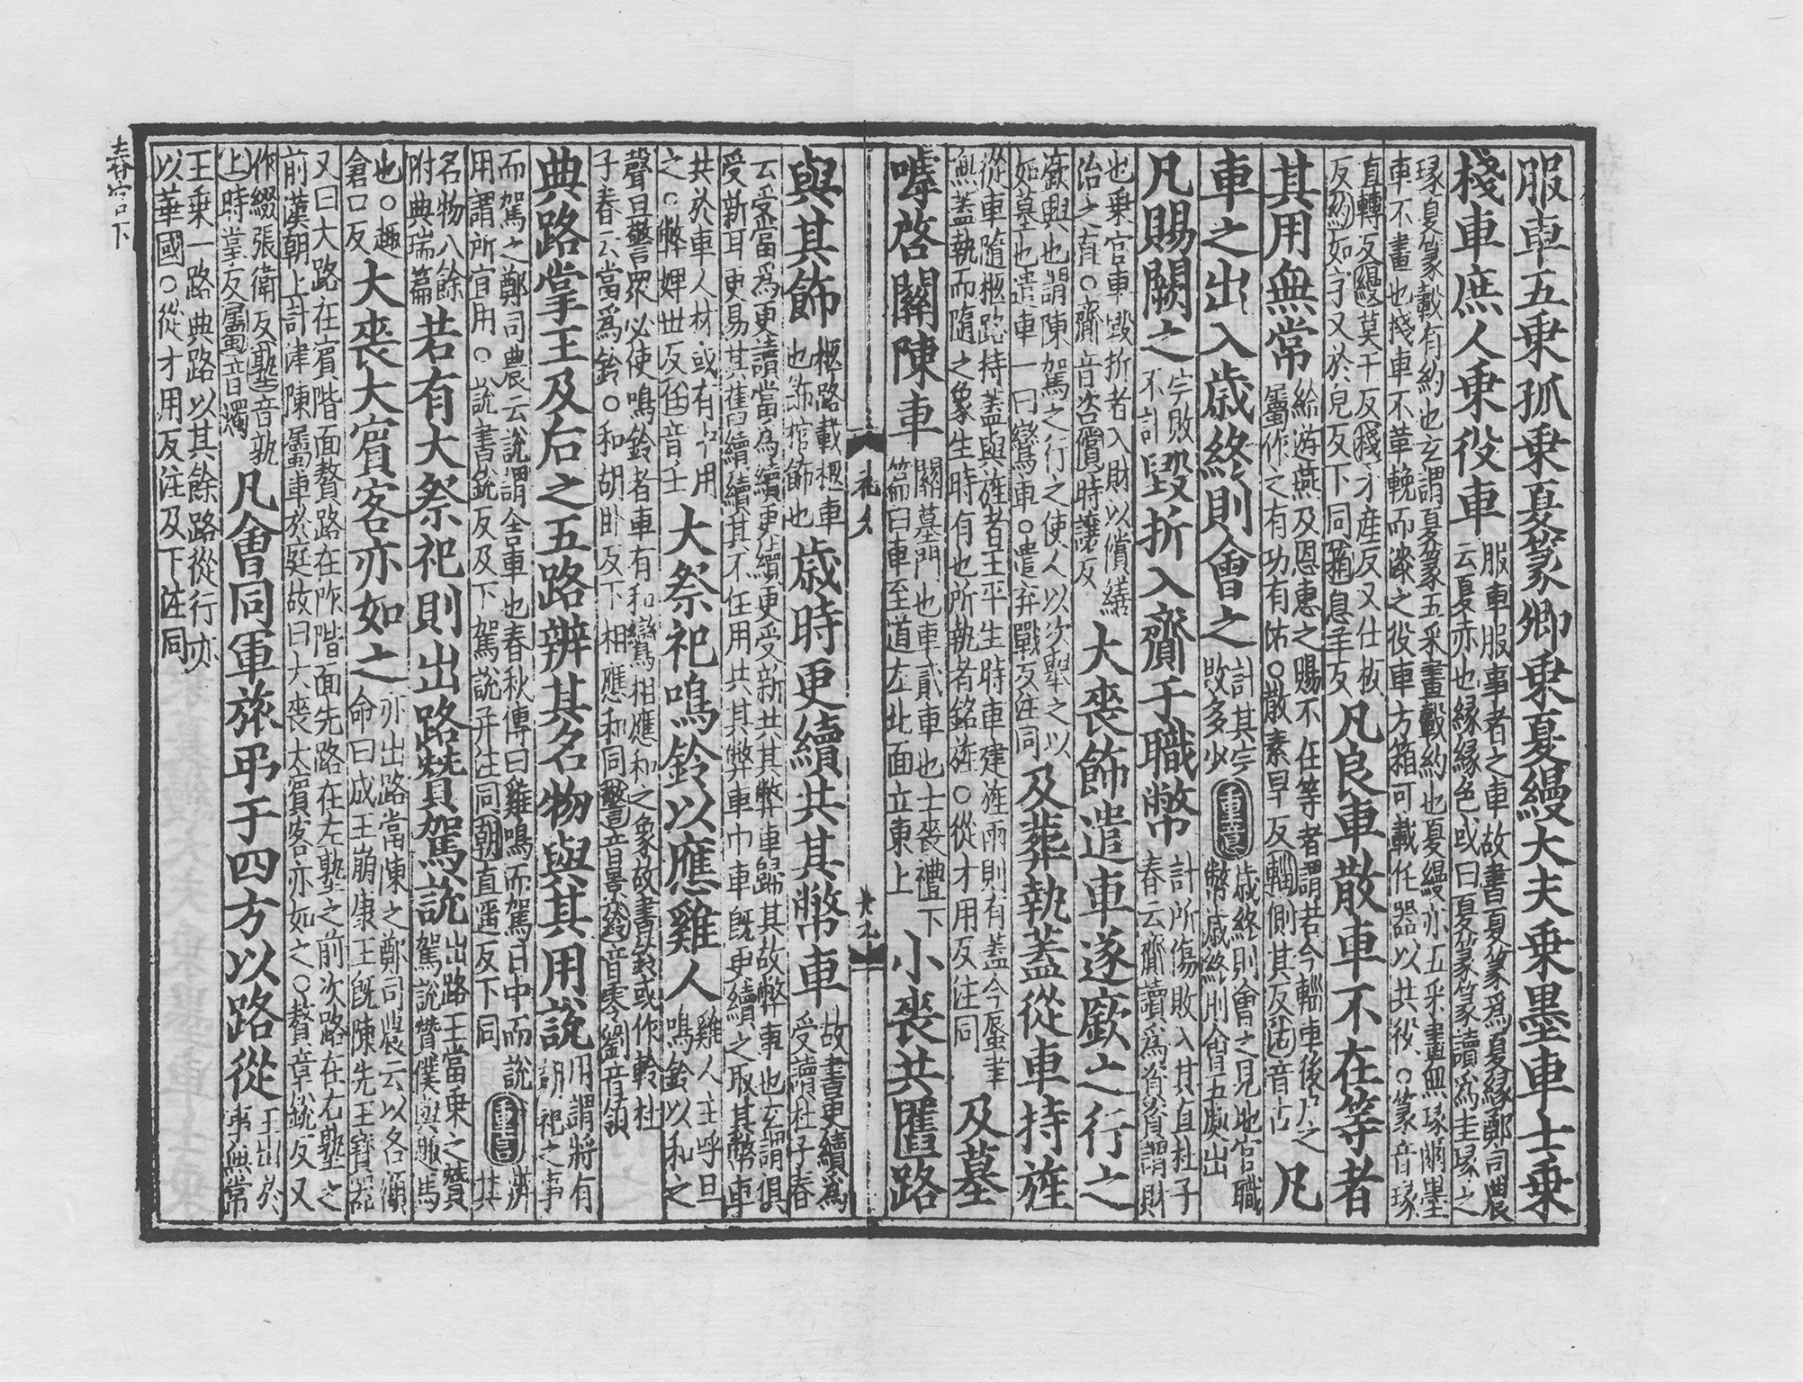 服車五乘孤乘夏篆卿乘夏縵大夫乘墨車士乘
棧車庶人乘役車服車服事者之車故書夏篆爲夏緣鄭司農云夏赤也緣緣色或曰夏篆篆讀爲圭瑑之
瑑夏篆轂有約也玄謂夏篆五采畫轂約也夏縵亦五采畫無瑑爾墨車不畫也棧車不革鞔而漆之役車方箱可載任器以共役○篆音瑑
直轉反縵莫干反棧才產反又仕板反約如字又於皃反下同箱息羊反凡良車散車不在等者
其用無常給游燕及恩惠之賜不在等者謂若今輜車後戶之屬作之有功有沽○散素旱反輜側其反沽音古凡
車之出入歲終則會之計其完敗多少重意歲終則會之見地官職幣歲終則會五處出
凡賜闕之完敗不計毀折入齎于職幣計所傷敗入其直杜子春云齎讀爲資資謂財
也乘官車毀折者入財以償繕治之直○齎音咨償時讓反大喪飾遣車遂廞之行之
廞興也謂陳駕之行之使人以次舉之以如墓也遣車一曰鸞車○遣弃戰反注同及葬執蓋從車持旌
從車隨柩路持蓋與旌者王平生時車建旌雨則有蓋今蜃車無蓋執而隨之象生時有也所執者銘旌○從才用反注同及墓
嘑啓關陳車關墓門也車貳車也士喪禮下篇曰車至道左北面立東上小喪共匶路
與其飾柩路載柩車也飾棺飾也歲時更續共其幣車故書更續爲受讀杜子春
云受當爲更讀當爲續更續更受新共其弊車歸其故弊車也玄謂俱受新耳更易其舊續續其不任用共其弊車巾車既更續之取其幣車
共於車人材或有中用之○弊婢世反任音壬大祭祀鳴鈴以應雞人雞人主呼旦鳴鈴以和之
聲且警眾必使鳴鈴者車有和鸞相應和之象故書鈴或作軨杜子春云當爲鈴○和胡卧反下相應和同警音景軨音零劉音領
典路掌王及后之五路辨其名物與其用說用謂將有朝祀之事
而駕之鄭司農云說謂舍車也春秋傳曰雞鳴而駕日中而說用謂所宜用○說書銳反及下駕說并注同朝直遥反下同重言辨其
名物八餘附典瑞篇若有大祭祀則出路贊駕說出路王當乘之贊駕說贊僕與趣馬
也○趣倉口反大喪大賓客亦如之亦出路當陳之鄭司農云以各顧命曰成王崩康王既陳先王寶器
又曰大路在賓階面贅路在阼階面先路在左塾之前次路在右塾之前漢朝上計津陳屬車於庭故曰大喪大賓客亦如之○贅章銳反又
作綴張衛反塾音孰上時掌反屬音燭凡會同軍旅弔于四方以路從王出於事無常
王乘一路典路以其餘路從行亦以華國○從才用反注及下注同
春官下